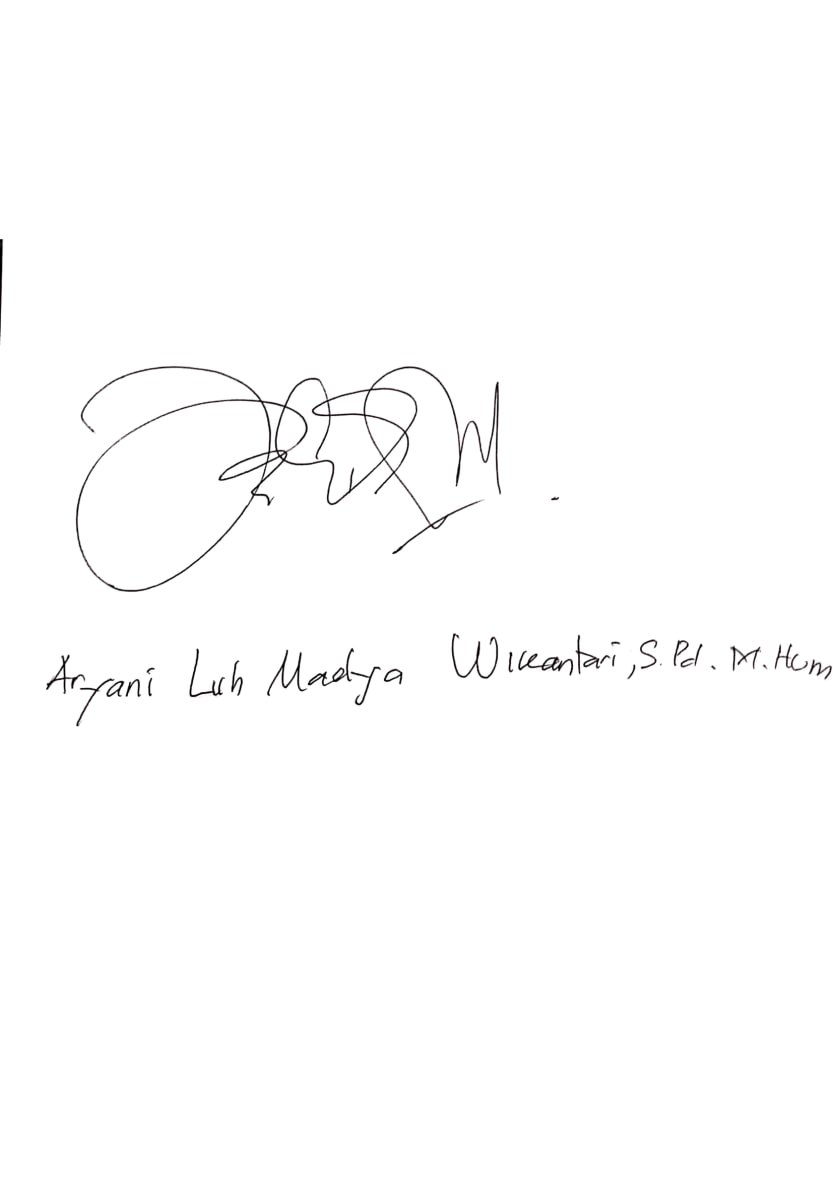 Aryani Luh Madya Wiceantari, S. Pd. M. Hum